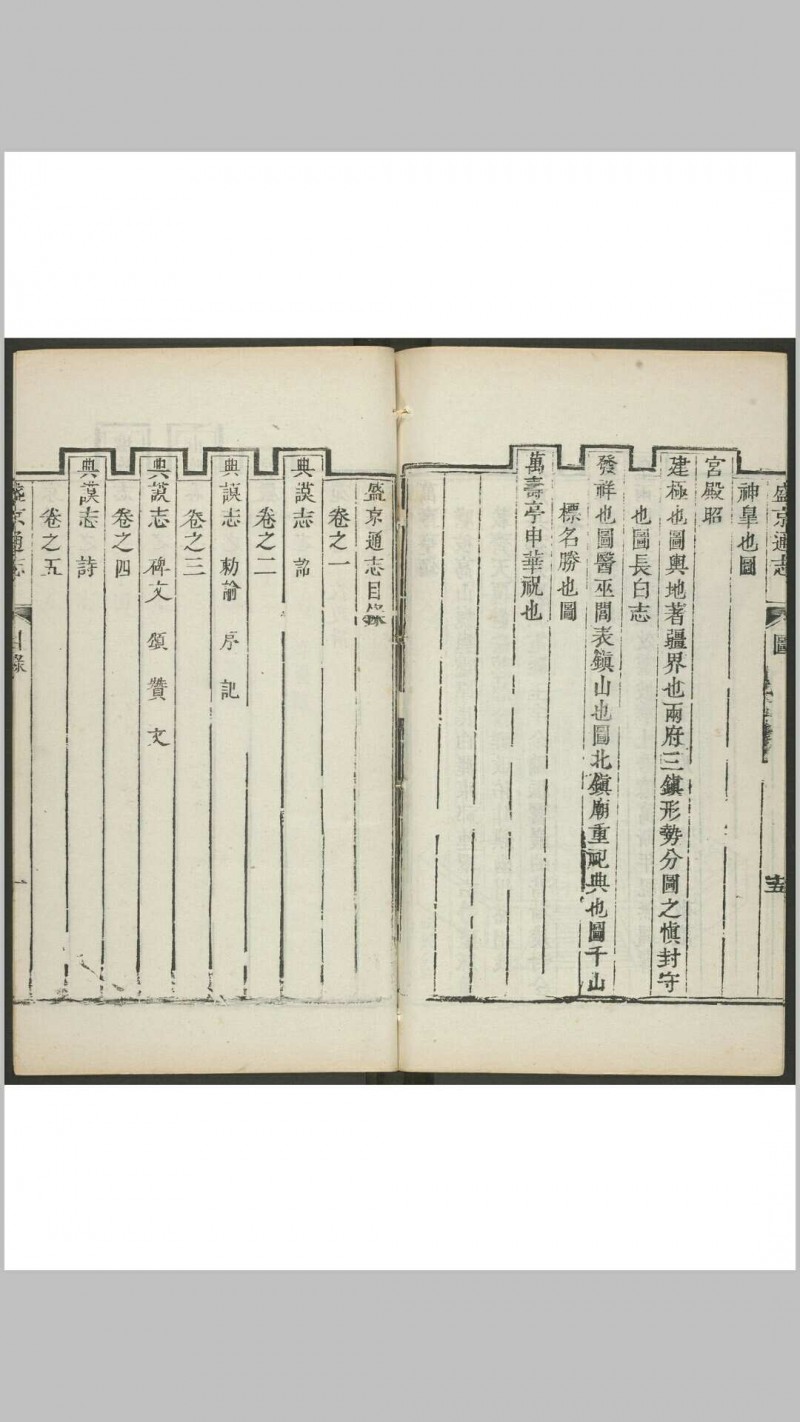 盛京通志 圖 十五
神臯也圖
宮殿昭
建極也圖輿地著疆界也兩府三鎮形勢分圖之愼封守
也圖長白志
發祥也圖醫巫閭表鎭山也圖北鎭廟重祀典也圖千山
標名勝也圖
萬壽亭申華祝也
盛京通志目錄
卷之一
典謨志 詔
卷之二
典謨志 勅諭 序 記
卷之三
典謨志 碑文 頌 贊 文
卷之四
典謨志 詩
卷之五
盛京通志 目錄 一